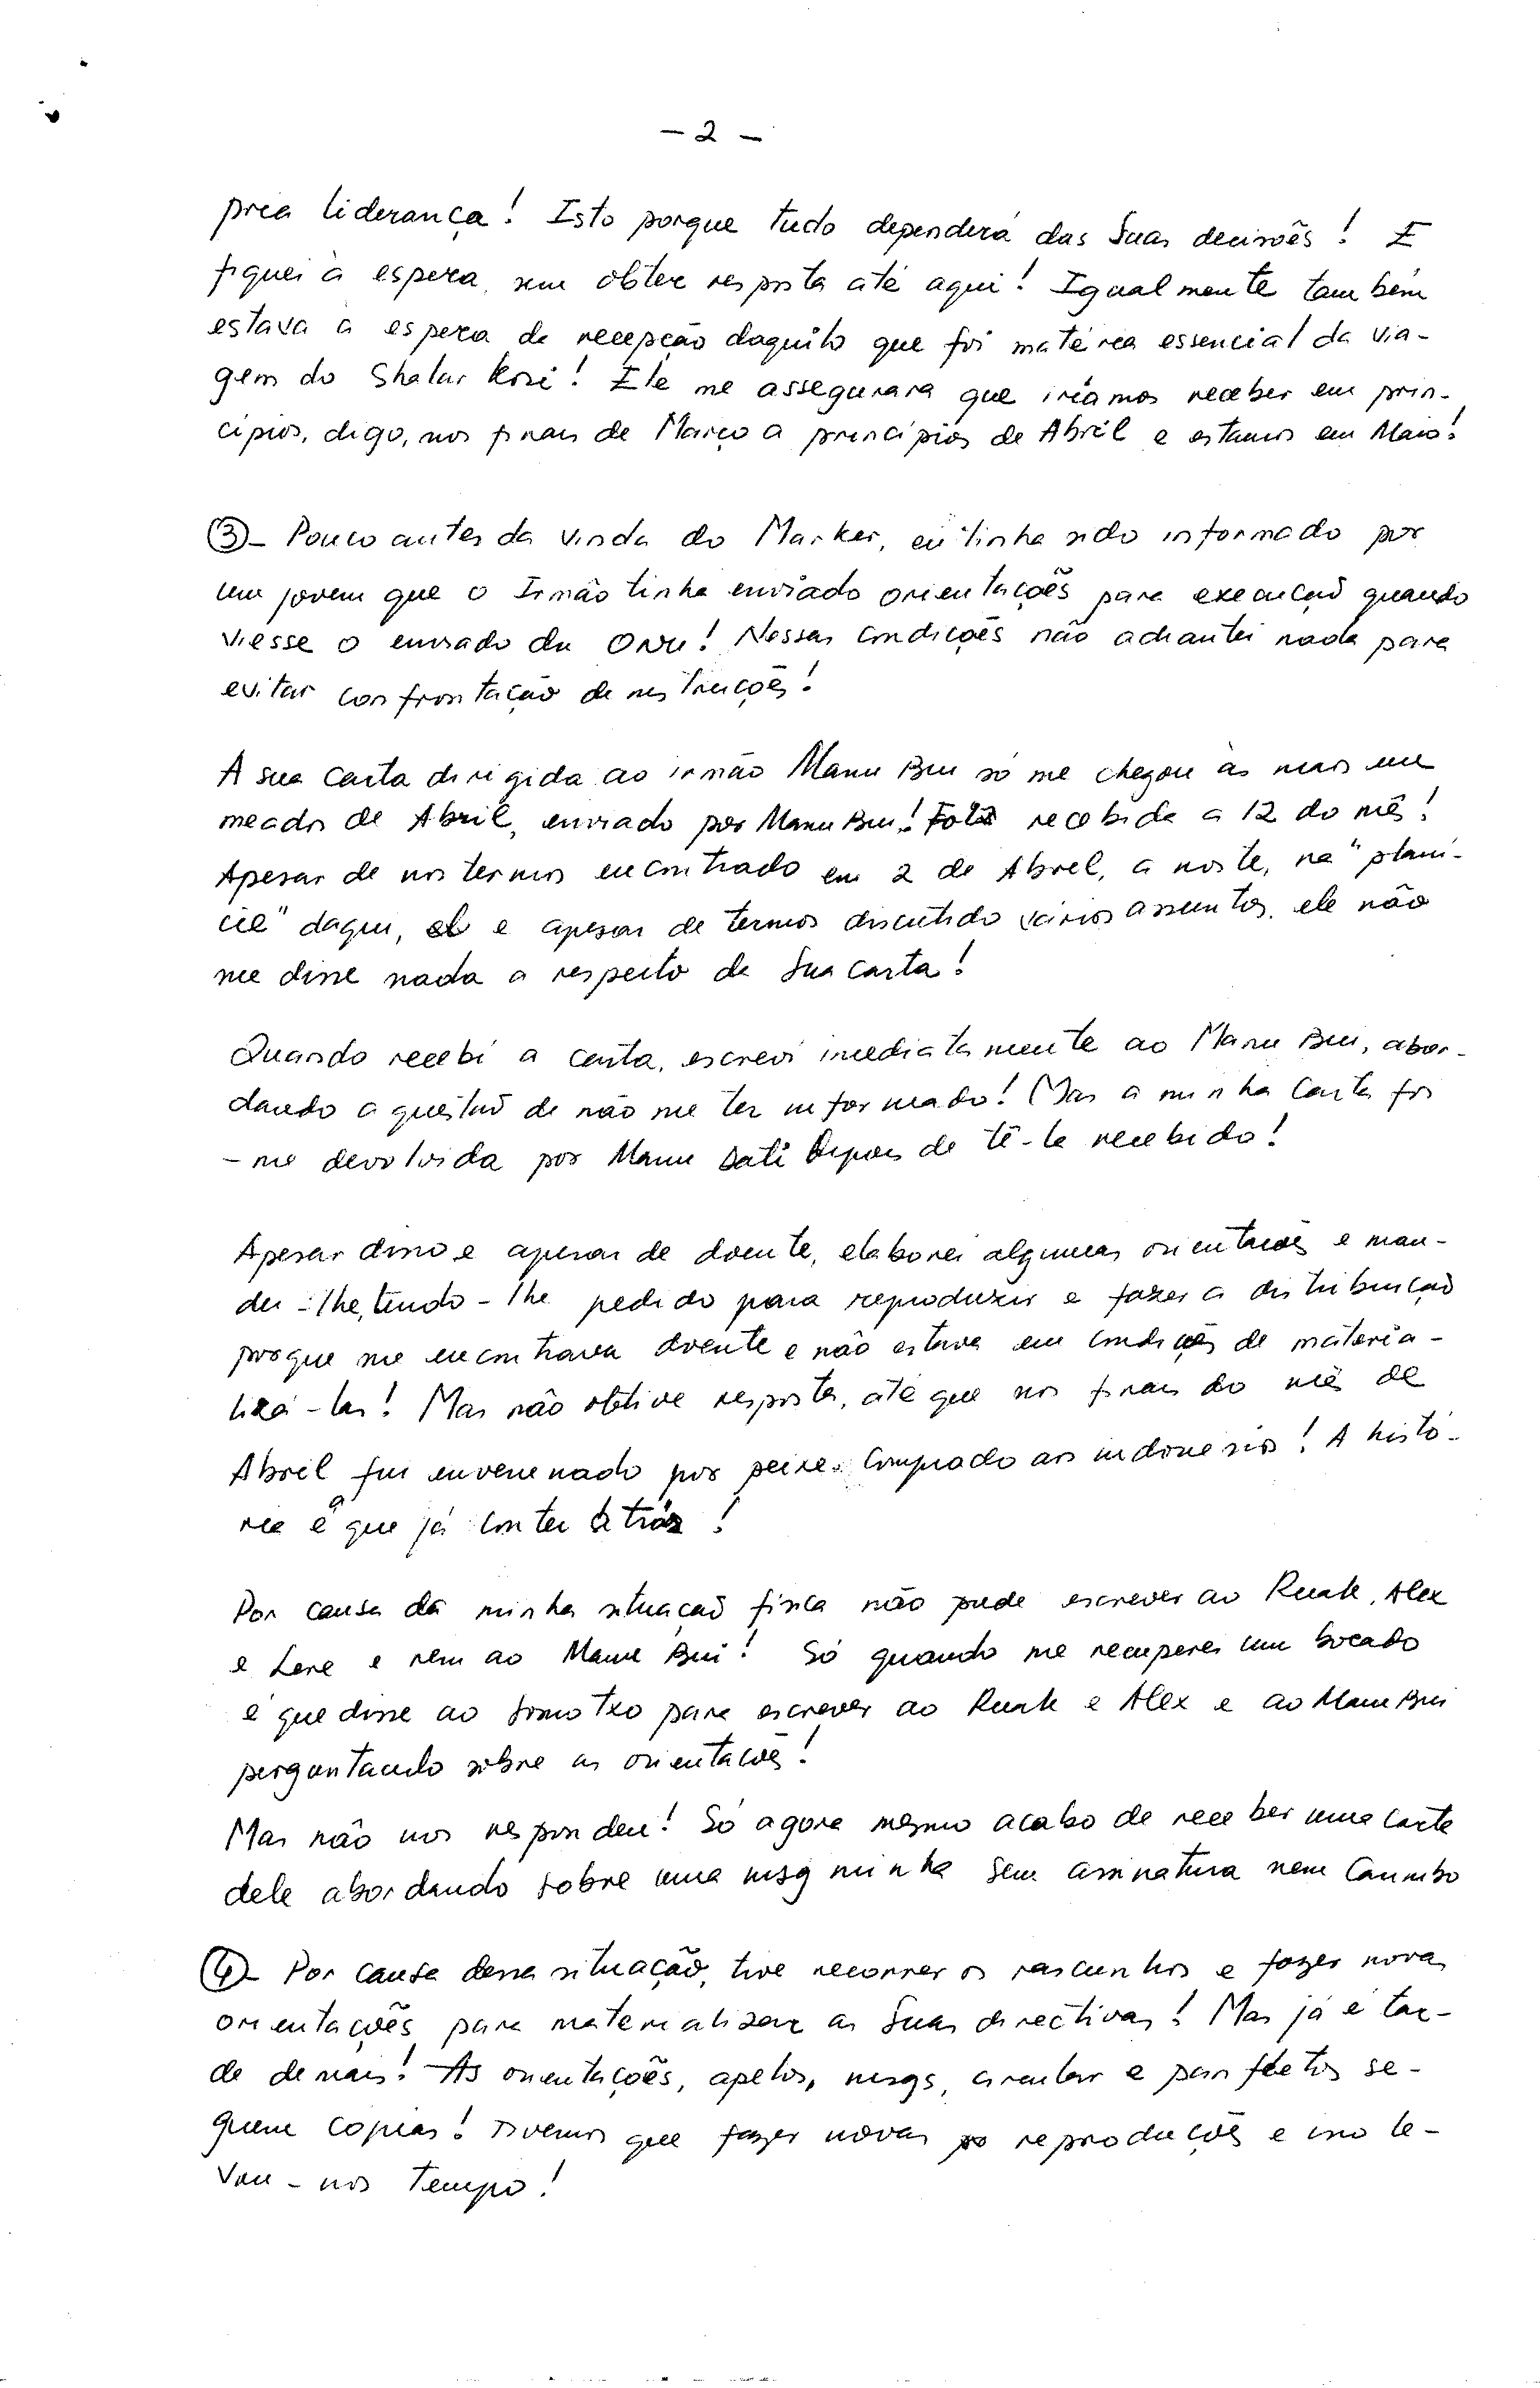 - 2 -
pria liderança! Isto porque tudo dependerá das Suas decisões! E
fiquei à espera, sem obter resposta até aqui! Igualmente também
estava à espera de recepção daquilo que foi matéria essencial da via-
gem do Shalar Kosi! Ele me assegurara que iríamos receber em prin-
cípios, digo, nos finais de Março a princípios de Abril e estamos em Maio!
③- Pouco antes da vinda do Marker, eu tinha sido informado por
um jovem que o Irmão tinha enviado orientações para execução quando
viesse o enviado da ONU! Nessas condições não adiantei nada para
evitar confrontação de instruções!
A sua carta dirigida ao irmão Manu Bui só me chegou às mãos em
meados de Abril, enviado por Manu Bui! Foi recebida a 12 do mês!
Apesar de nos termos encontrado em 2 de Abril, à noite, na "planí-
cie" daqui, e apesar de termos discutido vários assuntos, ele não
me disse nada a respeito da Sua carta!
Quando recebi a carta, escrevi imediatamente ao Manu Bui, abor-
dando a questão de não me ter informado! Mas a minha carta foi
-me devolvida por Manu Sati depois de tê-la recebido!
Apesar disso e apesar de doente, elaborei algumas orientações e man-
dei-lhe, tendo-lhe pedido para reproduzir e fazer a distribuição
porque me encontrava doente e não estava em condições de materia-
lizá-las! Mas não obtive resposta, até que nos finais do mês de
Abril fui envenenado por peixe comprado aos indonésios! A histó-
ria é a que já contei atrás!
Por causa da minha situação física não pude escrever ao Ruak, Alex
e Lere e nem ao Manu Bui! Só quando me recuperei um bocado
é que disse ao Somotxo para escrever ao Ruak e Alex e ao Manu Bui
perguntando sobre as orientações!
Mas não nos respondeu! Só agora mesmo acabo de receber uma carta
dele abordando sobre uma msg minha sem assinatura nem carimbo
④- Por causa dessa situação, tive recorrer os rascunhos e fazer novas
orientações para materializar as Suas directivas! Mas já é tar-
de demais! As orientações, apelos, msgs, circular e panfletos se-
guem copias! Tivemos que fazer novas reproduções e isso le-
vou-nos tempo!